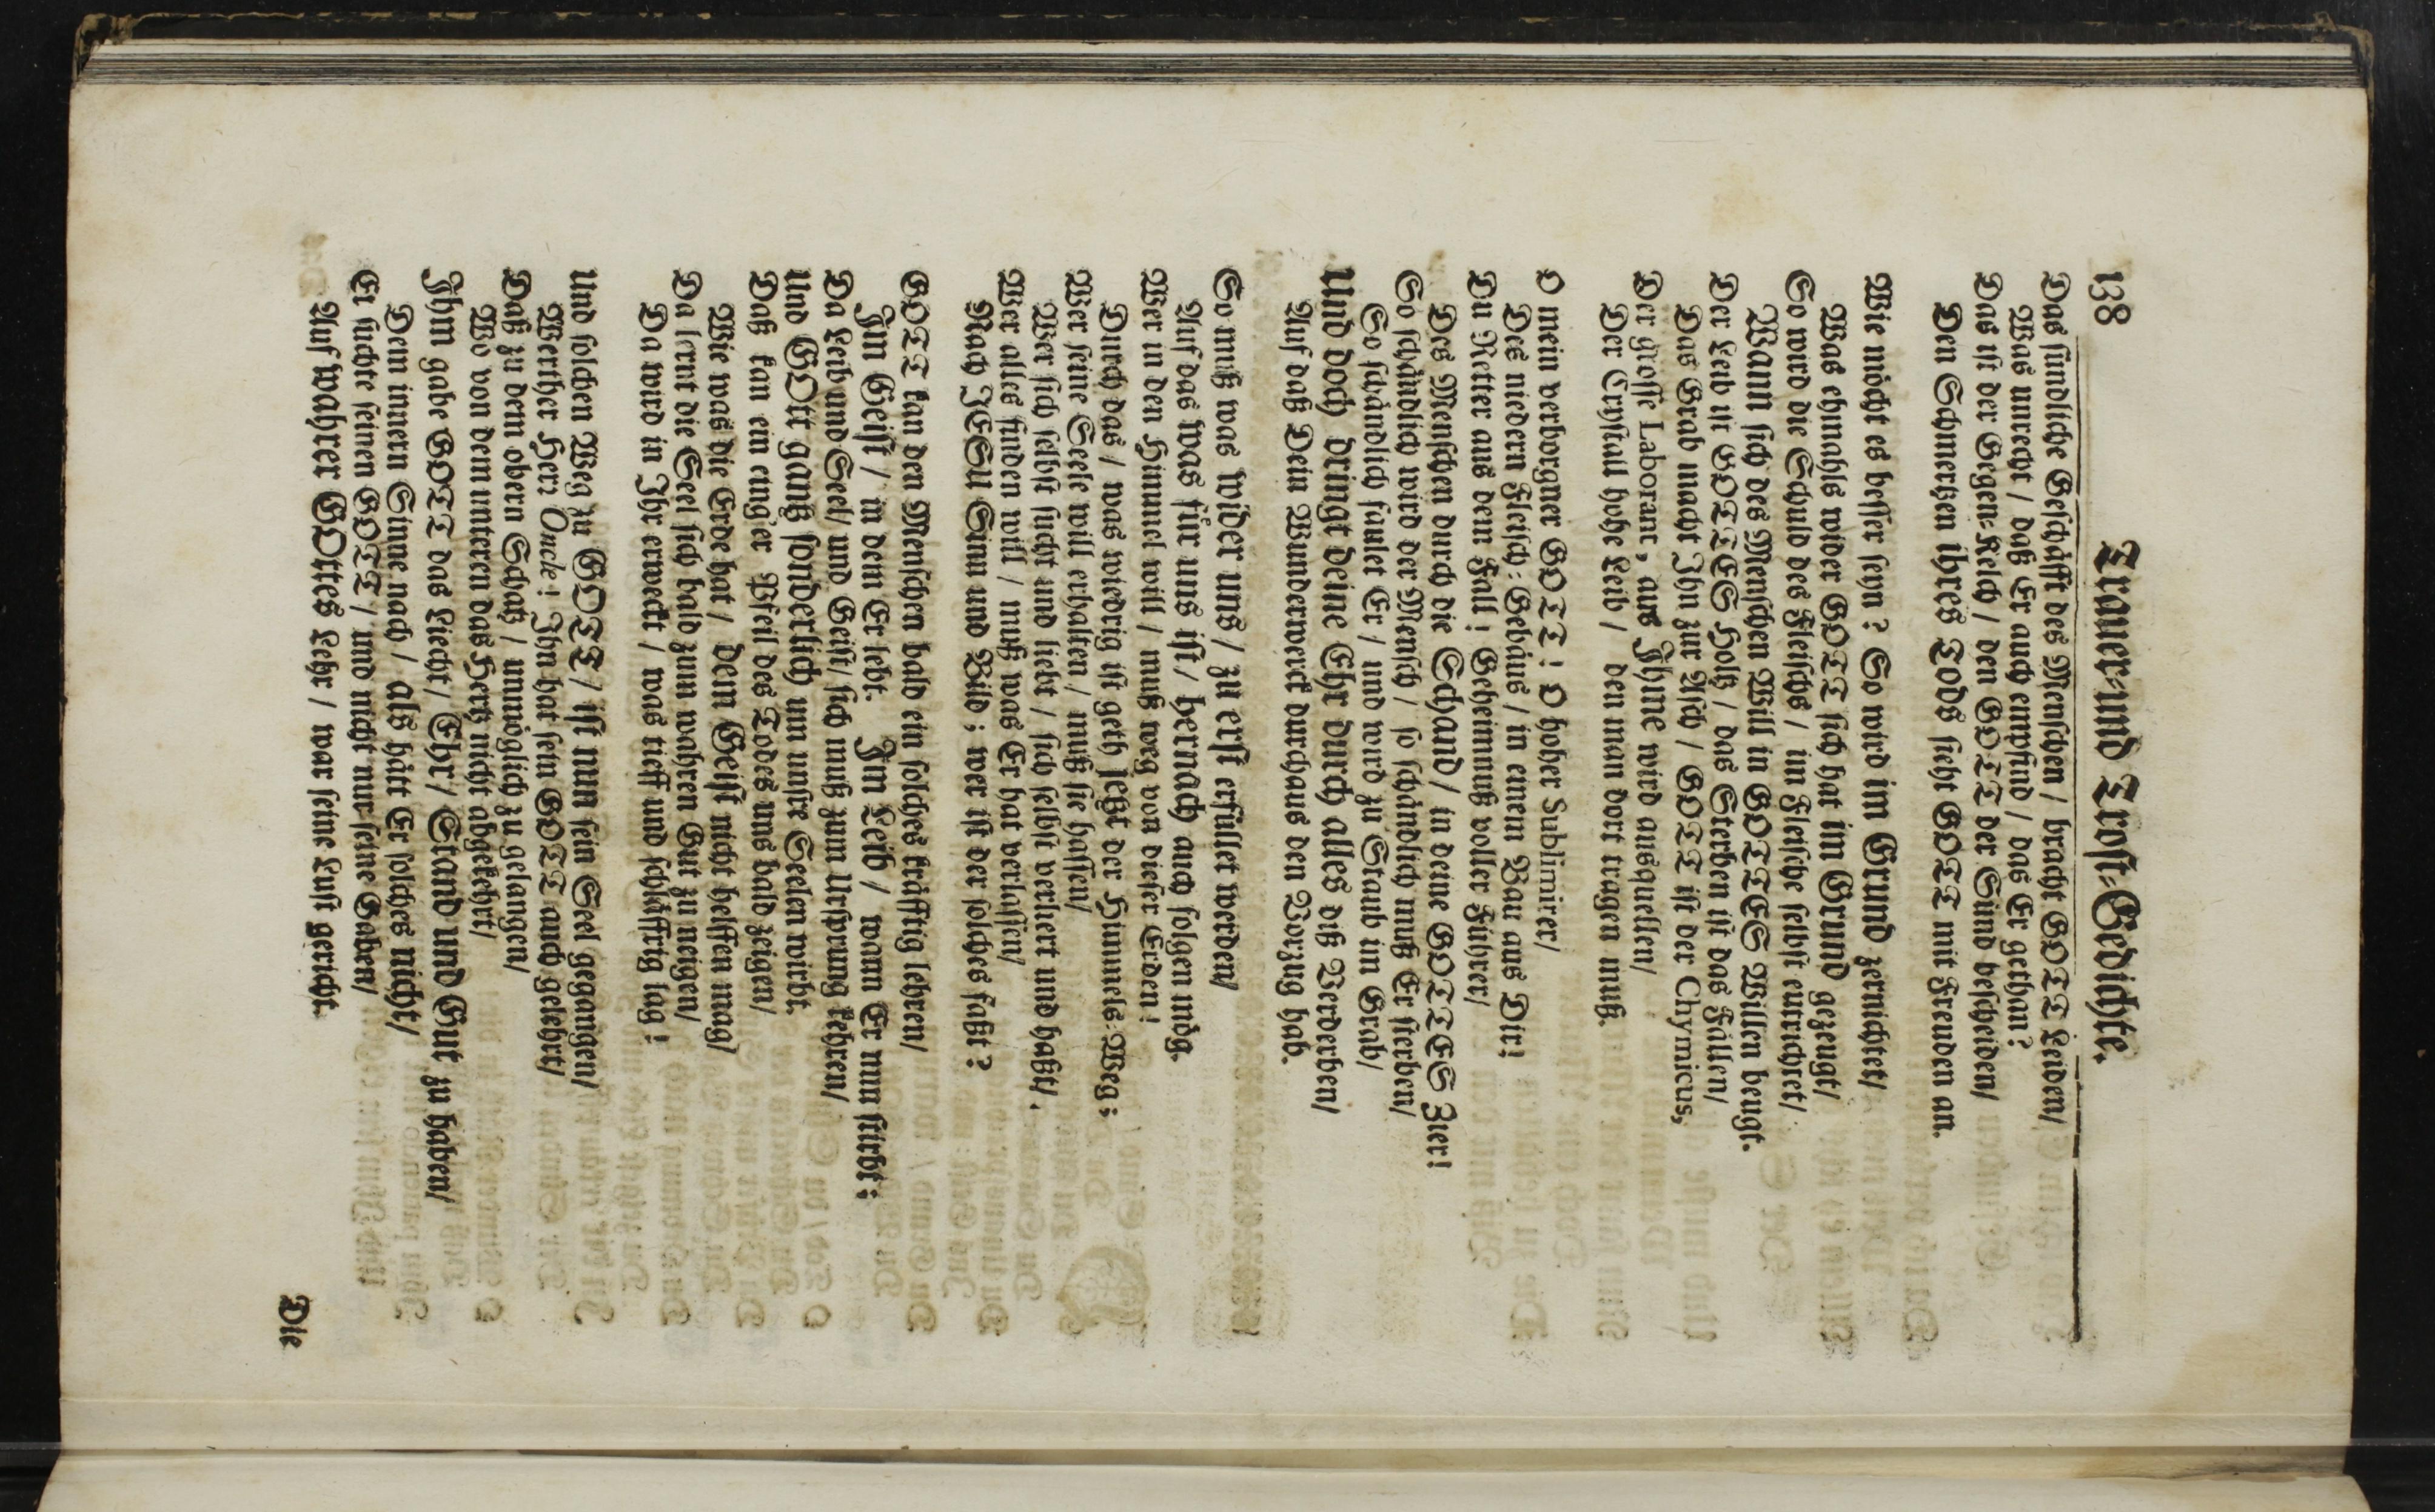 138 Trauer- und Trost-Gedichte.
Das sündliche Geschäfft des Menschen / bracht GOTT Leiden/
Was unrecht / daß Er auch empfind / das Er gethan?
Das ist der Gegen-Kelch / den GOTT der Sünd bescheiden/
Den Schmertzen ihres Tods sieht GOTT mit Freuden an.
Wie möcht es besser seyn? So wird im Grund zernichtet/
Was ehmahls wider GOTT sich hat im Grund gezeugt/
So wird die Schuld des Fleischs / im Fleische selbst entrichtet/
Wann sich des Menschen Will in GOTTES Willen beugt.
Der Leib ist GOTTES Holtz / das Sterben ist das Fällen/
Das Grab macht Ihn zur Asch / GOTT ist der Chymicus,
Der grosse Laborant, aus Ihme wird ausquellen/
Der Crystall hohe Leib / den man dort tragen muß.
O mein verborgner GOTT! O hoher Sublimirer/
Des niedern Fleisch-Gebäus / in einem Bau aus Dir!
Du Retter aus dem Fall! Geheimnuß voller Führer/
Des Menschen durch die Schand / in deine GOTTES Zier!
So schändlich wird der Mensch / so schändlich muß Er sterben/
So schändlich faulet Er / und wird zu Staub im Grab/
Und doch dringt deine Ehr durch alles diß Verderben/
Auf daß Dein Wunderwerck durchaus den Vorzug hab.
So muß was wider uns / zu erst erfüllet werden/
Auf das was für uns ist / hernach auch folgen mög.
Wer in den Himmel will / muß weg von dieser Erden!
Durch das / was niedrig ist geth setzt der Himmels-Weg:
Wer seine Seele will erhalten / muß sie hassen/
Wer sich selbst sucht und liebt / sich selbst verliert und haßt/
Wer alles finden will / muß was Er hat verlassen/
Nach JESU Sinn und Bild; wer ist der solches faßt?
GOTT kan den Menschen bald ein solches kräfftig lehren/
Im Geist / in dem Er lebt. Im Leib / wann Er nun stirbt:
Da Leib und Seel / und Geist / sich muß zum Ursprung kehren/
Und GOtt gantz sonderlich um unsre Seelen wirbt.
Daß kan ein eintz'ger Pfeil des Todes uns bald zeigen/
Wie was die Erde hat / dem Geist nicht helffen mag/
Da lernt die Seel sich bald zum wahren Gut zu neigen/
Da wird in Ihr erweckt / was tieff und schläffrig lag!
Und solchen Weg zu GOTT / ist nun sein Seel gegangen/
Werther Herr Oncle! Ihn hat sein GOTT auch gelehrt/
Daß zu dem obern Schatz / unmöglich zu gelangen/
Wo von dem unteren das Hertz nicht abgekehrt/
Ihm gabe GOTT das Liecht / Ehr / Stand und Gut zu haben/
Dem innern Sinne nach / als hätt Er solches nicht/
Er suchte seinen GOTT / und nicht nur seine Gaben/
Auf wahrer GOttes Lehr / war seine Lust gericht.
Die